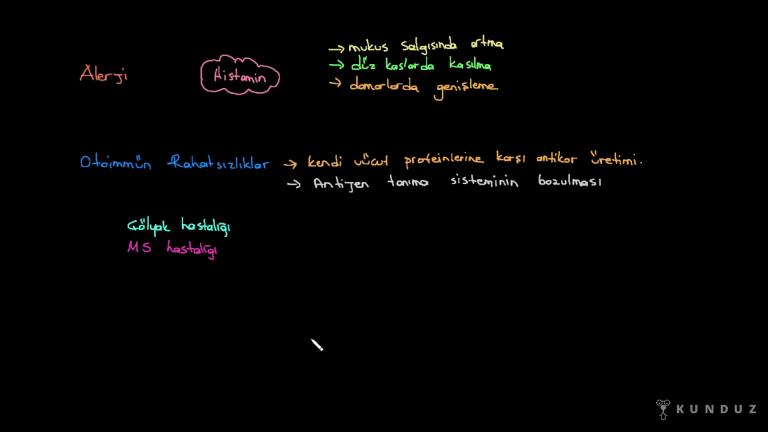 Alerji
Histamin
→ mukus salgısında artma
→ düz kaslarda kasılma
→ damarlarda genişleme
Otoimmün Rahatsızlıklar → kendi vücut proteinlerine karşı antikor üretimi.
→ Antijen tanıma sisteminin bozulması
Çölyak hastalığı
MS hastalığı
KUNDUZ